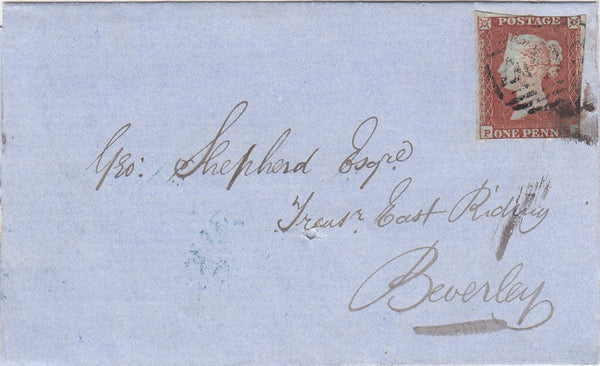 POSTAGE
P ONE PENN
Geo: Shepherd Esqre
Treasr East Riding
Beverley